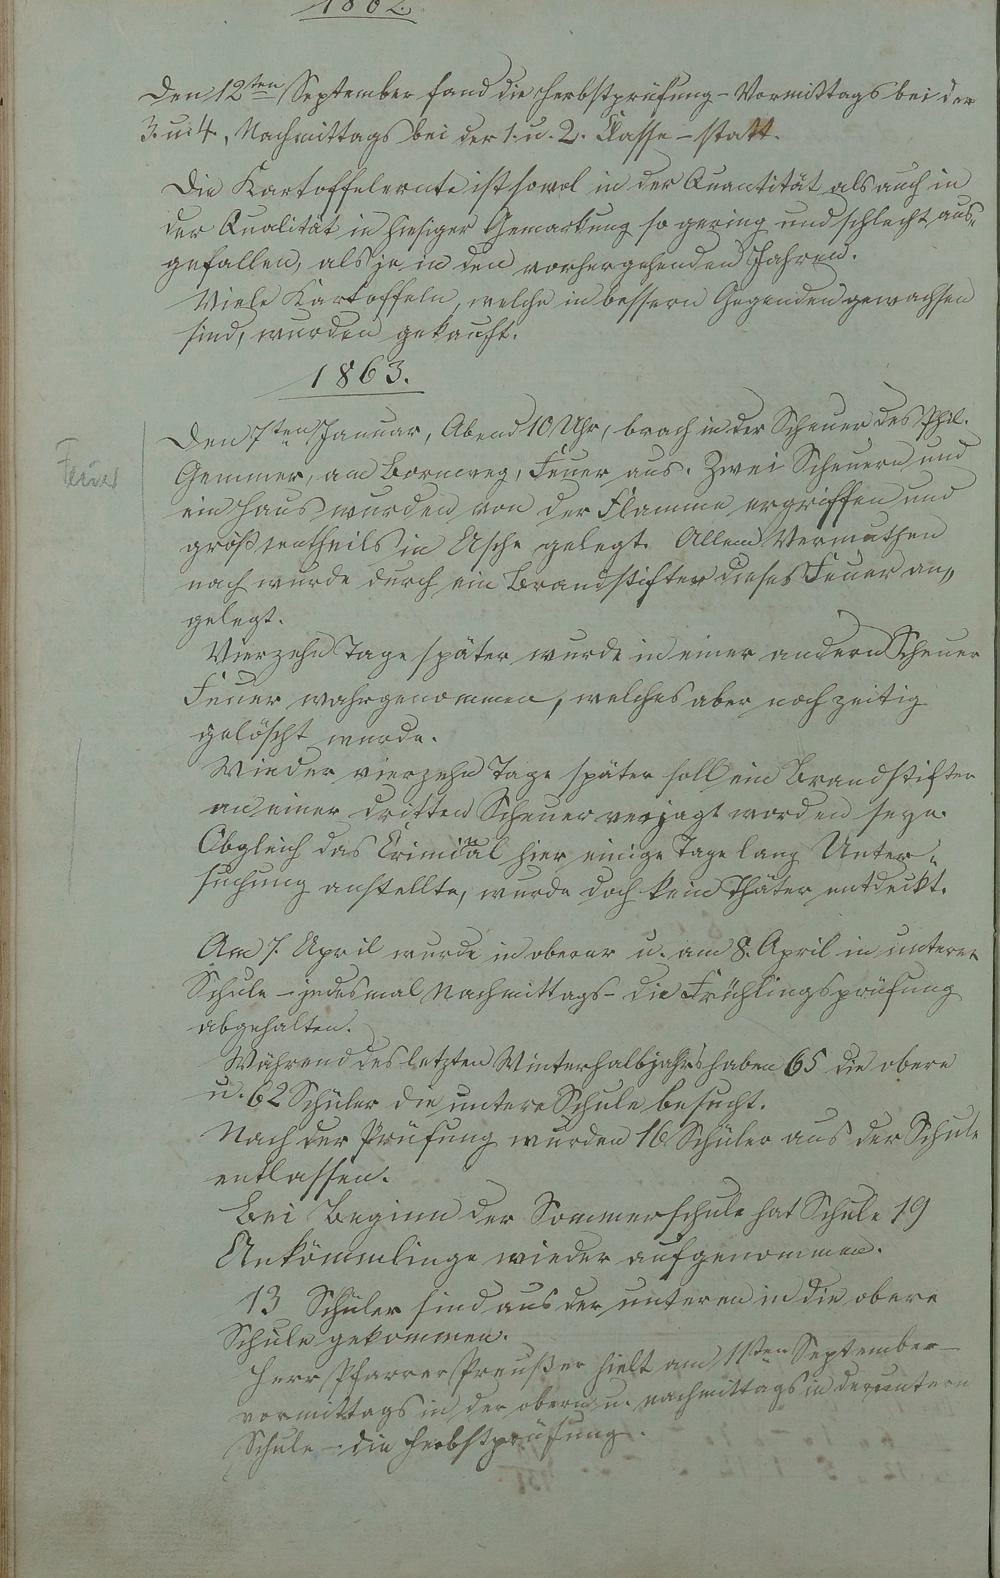 1862.
Den 12ten September fand die Herbstprüfung - Vormittags bei der
3. u. 4., Nachmittags bei der 1. u. 2. Klasse - statt.
Die Kartoffelernte ist sowol in der Quantität als auch in
der Qualität in hiesiger Gemarkung so gering und schlecht aus„
gefallen, als je in den vorhergehenden Jahren.
Viele Kartoffeln, welche in bessern Gegenden gewachsen
sind, wurden gekauft.
1863.
Den 7ten Januar, Abend 10 Uhr, brach in der Scheuer des Phil.
Feuer
Gemmer, am Bornweg, Feuer aus. Zwei Scheuern und
ein Haus wurden von der Flamme ergriffen und
größtentheils in Asche gelegt. Allem Vermuthen
nach wurde durch ein Brandstifter dieses Feuer an„
gelegt.
Vierzehn Tage später wurde in einer andern Scheuer
Feuer wahrgenommen, welches aber noch zeitig
gelöscht wurde.
Wieder vierzehn Tage später soll ein Brandstifter
an einer dritten Scheuer verjagt worden seyn.
Obgleich das Criminal hier einige Tage lang Unter„
suchung anstellte, wurde doch kein Thäter entdeckt.
Am 7. April wurde in oberer u. am 8. April in unterer
Schule - jedesmal Nachmittags - die Frühlingsprüfung
abgehalten.
Während des letzten Winterhalbjahrs haben 65 die obere
u. 62 Schüler die untere Schule besucht.
Nach der Prüfung wurden 16 Schüler aus der Schule
entlassen.
Bei Beginn der Sommerschule hat Schule 19
Ankömmlinge wieder aufgenommen.
13 Schüler sind aus der unteren in die obere
Schule gekommen.
Herr Pfarrer Preußer hielt am 11ten September -
vormittags in der obern u. nachmittags in der untern
Schule - die Herbstprüfung.